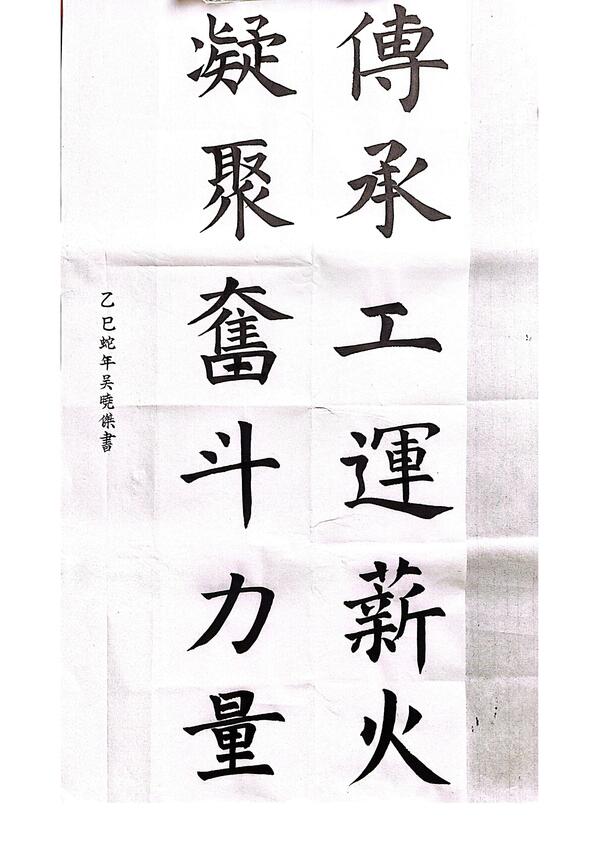 傳承工運薪火
凝聚奮斗力量
乙巳蛇年吴曉傑書